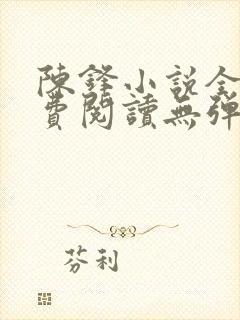 陳鋒小說全
費閱讀無彈
芬利